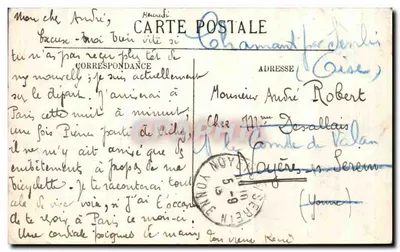 Mercredi
Mon cher André,
CARTE POSTALE
Excuse-moi bien vite si
tu n'as pas reçu plus tôt de
CORRESPONDANCE
mes nouvelles; je suis actuellement
sur le départ. J'arriverai à
Paris cette nuit à minuit,
une fois Pierre parti de
il ne m'y ait arrivé que des
embêtements à propos de ma
bicyclette. Je te raconterai tout
cela de vive voix, si j'ai l'occasion
de te revoir à Paris ce mois-ci.
Une cordiale poignée de mains,
ton vieux René
Chamant par Senlis
(Oise)
ADRESSE
Monsieur André Robert
Chez Mme Desallais
le Comte de Valan
Noyers sur Serein
(Yonne)
NOYERS SUR SEREIN YONNE